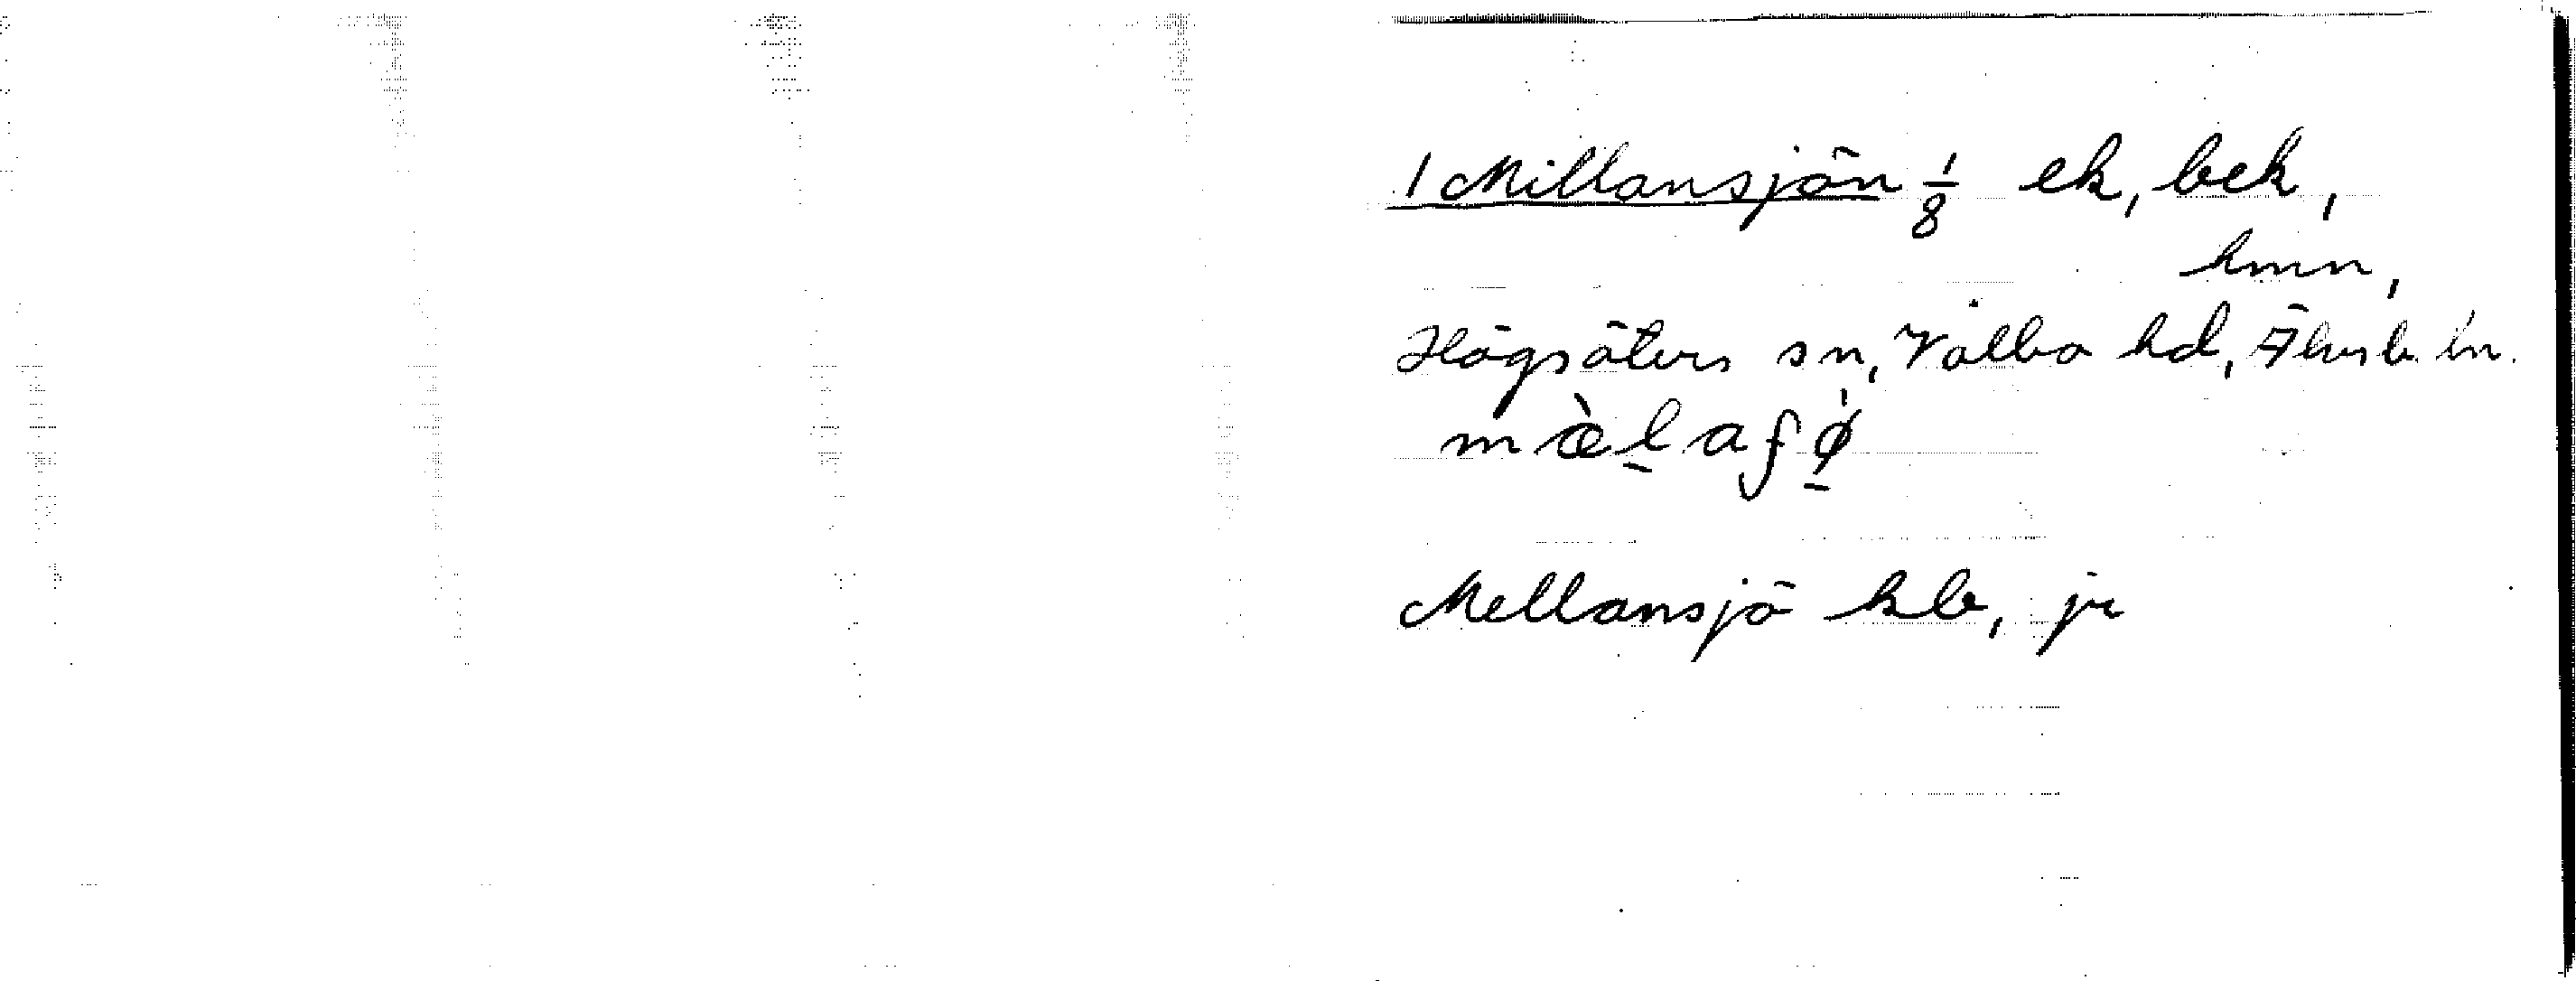 1 Millansjön 1/8 ek, bek,
hmn,
Högsäters sn, Valbo hd, Älvsb. ln.
mæ̀l̠afø̠̍
Mellansjö kb, jr